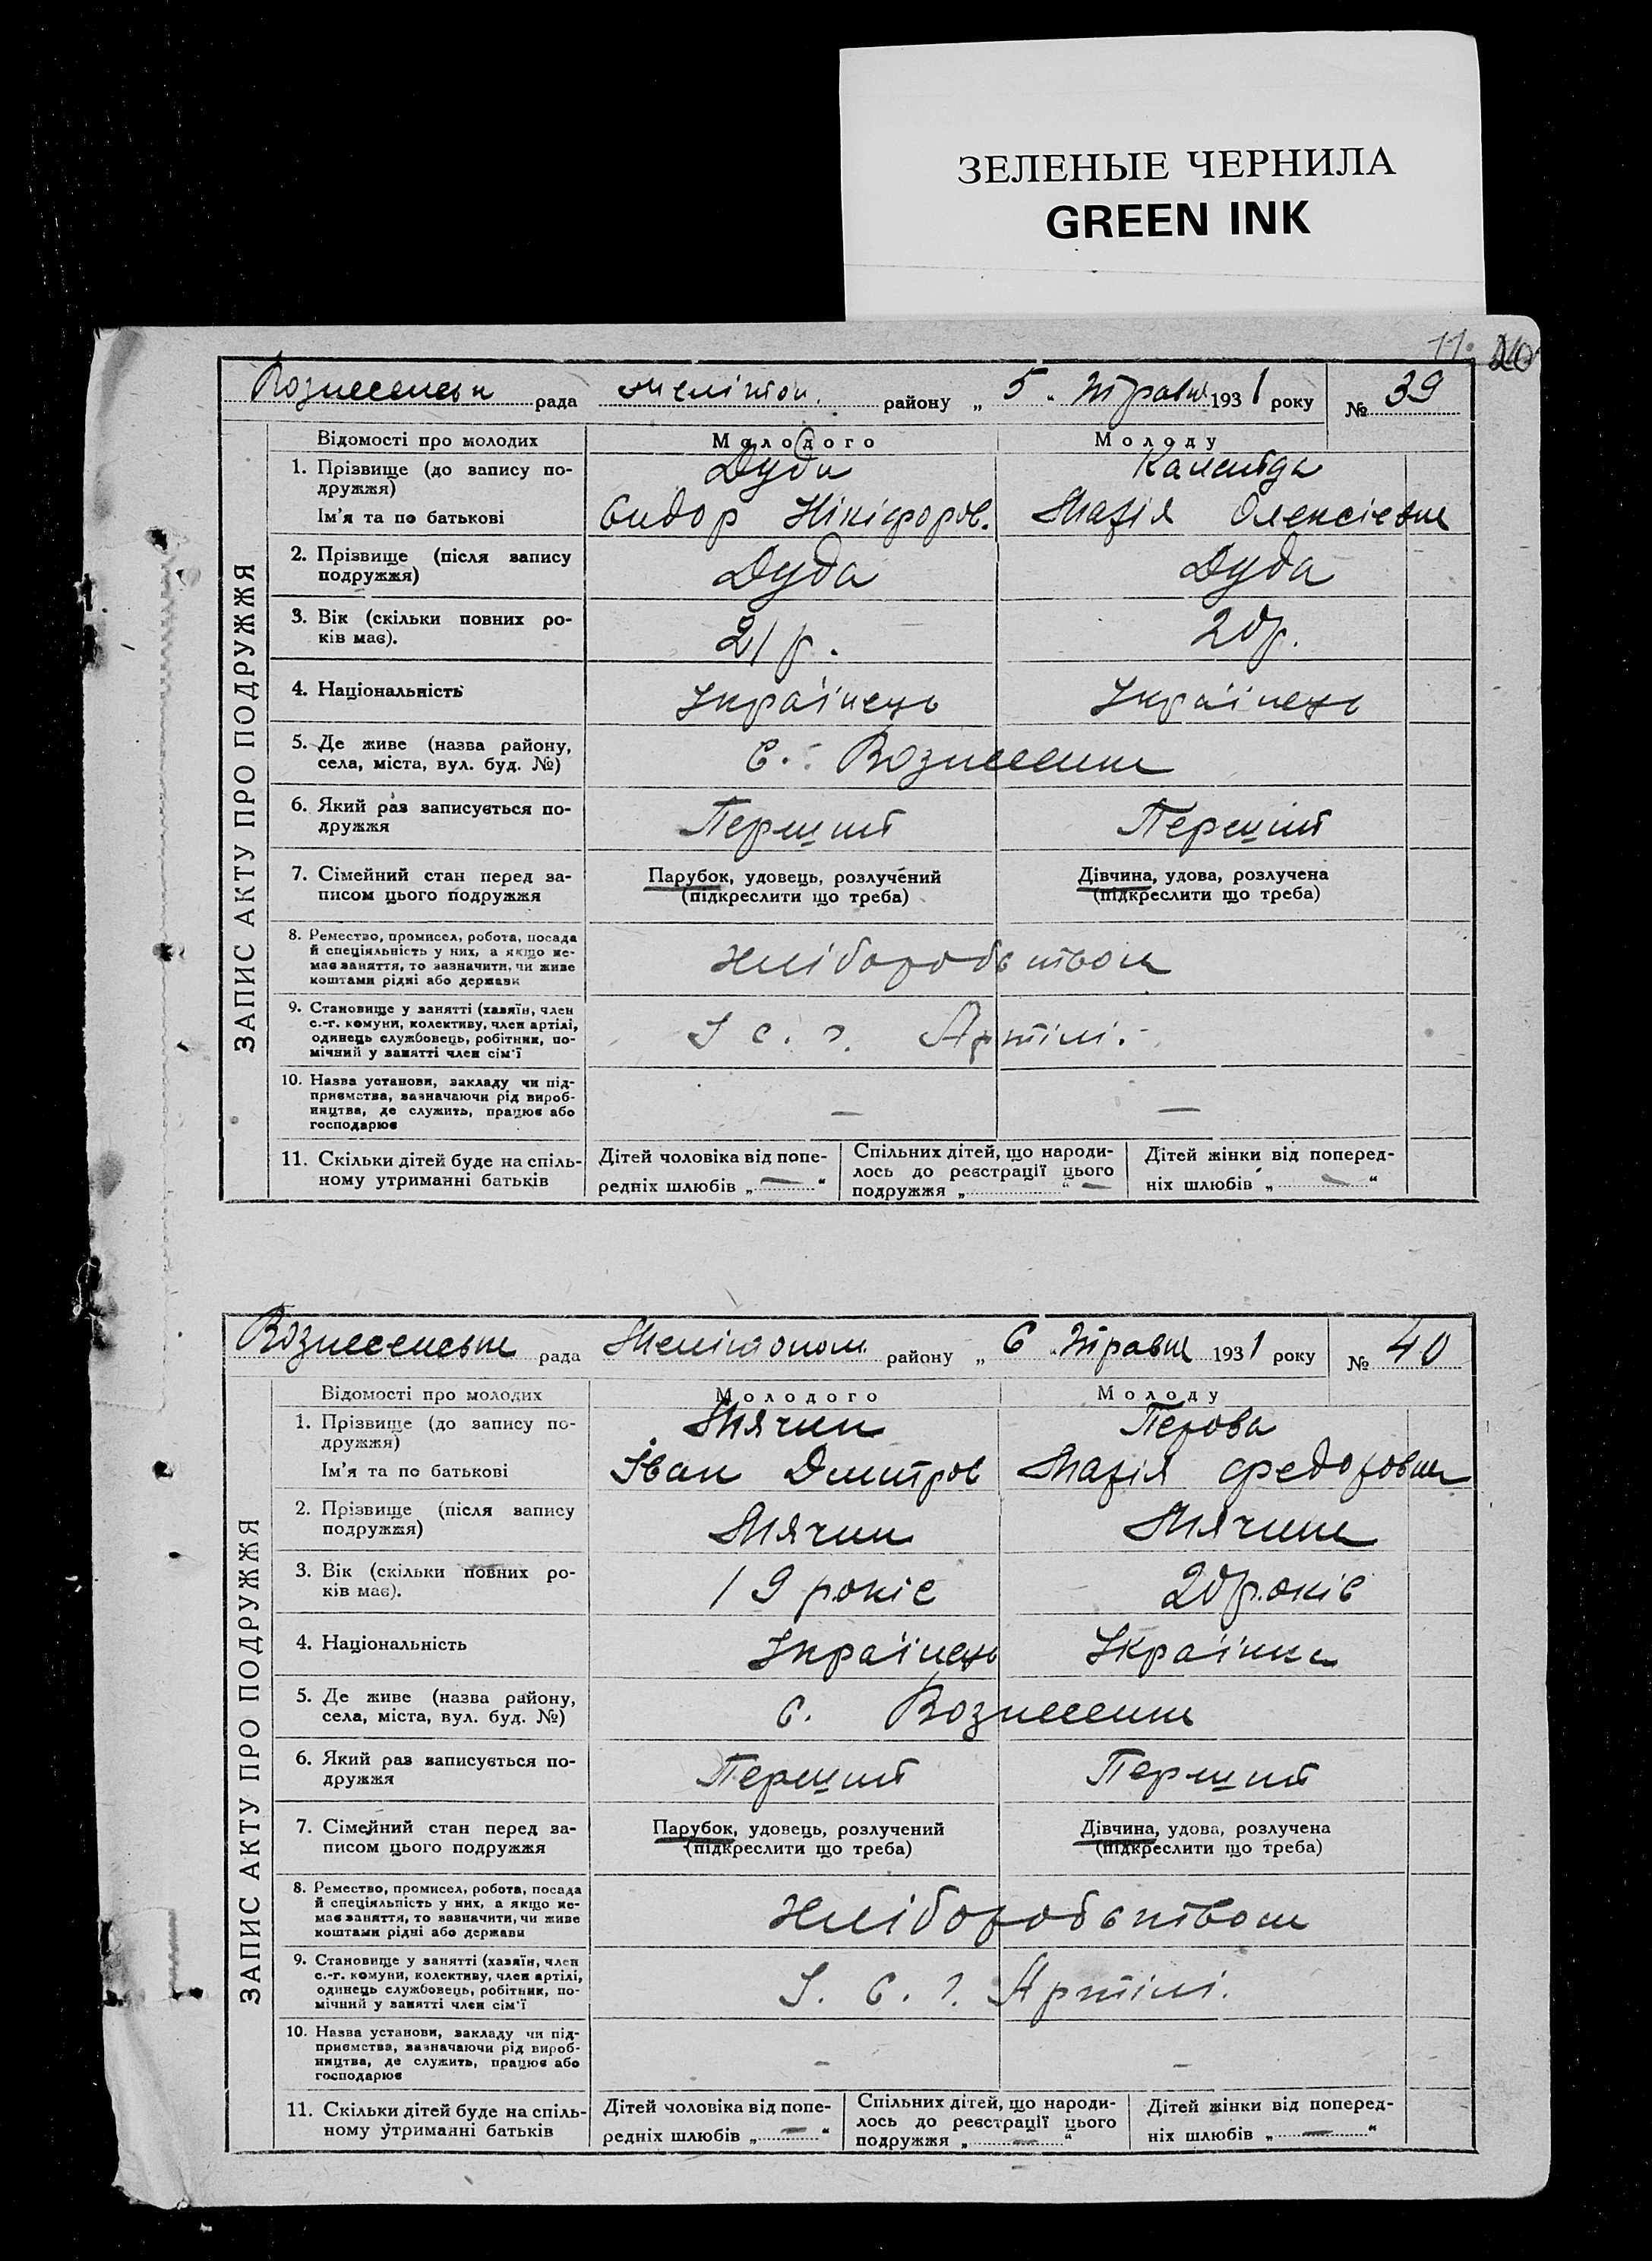 ЗЕЛЕНЫЕ ЧЕРНИЛА
GREEN INK
11.
Вознесенськ рада Мелітоп. району „ 5 „ Травня 1931 року № 39
ЗАПИС АКТУ ПРО ПОДРУЖЖЯ
Відомості про молодих Молодого Молоду
1. Прізвище (до запису по-
дружжя) Дуда
Ім'я та по батькові Сидор Нікіфоров. Марія Олексієвна
2. Прізвище (після запису
подружжя) Дуда Дуда
3. Вік (скільки повних ро-
ків має). 21 р. 20 р.
4. Національність Українець Українець
5. Де живе (назва району,
села, міста, вул. буд. №) С. Вознесенка
6. Який раз записується по-
дружжя Перший Перший
7. Сімейний стан перед за-
писом цього подружжя
Парубок, удовець, розлучений
(підкреслити що треба)
Дівчина, удова, розлучена
(підкреслити що треба)
8. Ремество, промисел, робота, посада
й спеціяльність у них, а якщо не-
має заняття, то зазначити, чи живе
коштами рідні або держави
Хліборобством
9. Становище у занятті (хазяїн, член
с.-г. комуни, колективу, член артілі,
одинець службовець, робітник, по-
мічний у занятті член сім'ї
У с. г. Артілі.
10. Назва установи, закладу чи під-
приємства, зазначаючи рід вироб-
ництва, де служить, працює або
господарює
— —
11. Скільки дітей буде на спіль-
ному утриманні батьків
Дітей чоловіка від попе-
редніх шлюбів „ — “
Спільних дітей, що народи-
лось до реєстрації цього
подружжя „ “ —
Дітей жінки від поперед-
ніх шлюбів „ — “
Вознесенська рада Мелітопол. району „ 6 „ Травня 1931 року № 40
ЗАПИС АКТУ ПРО ПОДРУЖЖЯ
Відомості про молодих Молодого Молоду
1. Прізвище (до запису по-
дружжя) Мячин Перова
Ім'я та по батькові Іван Дмитров Марія Федоровна
2. Прізвище (після запису
подружжя) Мячин Мячина
3. Вік (скільки повних ро-
ків має). 19 років 20 років
4. Національність Українець Українка
5. Де живе (назва району,
села, міста, вул. буд. №) С. Вознесенка
6. Який раз записується по-
дружжя Перший Перший
7. Сімейний стан перед за-
писом цього подружжя
Парубок, удовець, розлучений
(підкреслити що треба)
Дівчина, удова, розлучена
(підкреслити що треба)
8. Ремество, промисел, робота, посада
й спеціяльність у них, а якщо не-
має заняття, то зазначити, чи живе
коштами рідні або держави
Хліборобством
9. Становище у занятті (хазяїн, член
с.-г. комуни, колективу, член артілі,
одинець службовець, робітник, по-
мічний у занятті член сім'ї
У. с. г. Артілі.
10. Назва установи, закладу чи під-
приємства, зазначаючи рід вироб-
ництва, де служить, працює або
господарює
— —
11. Скільки дітей буде на спіль-
ному утриманні батьків
Дітей чоловіка від попе-
редніх шлюбів „ — “
Спільних дітей, що народи-
лось до реєстрації цього
подружжя „ — “
Дітей жінки від поперед-
ніх шлюбів „ — “